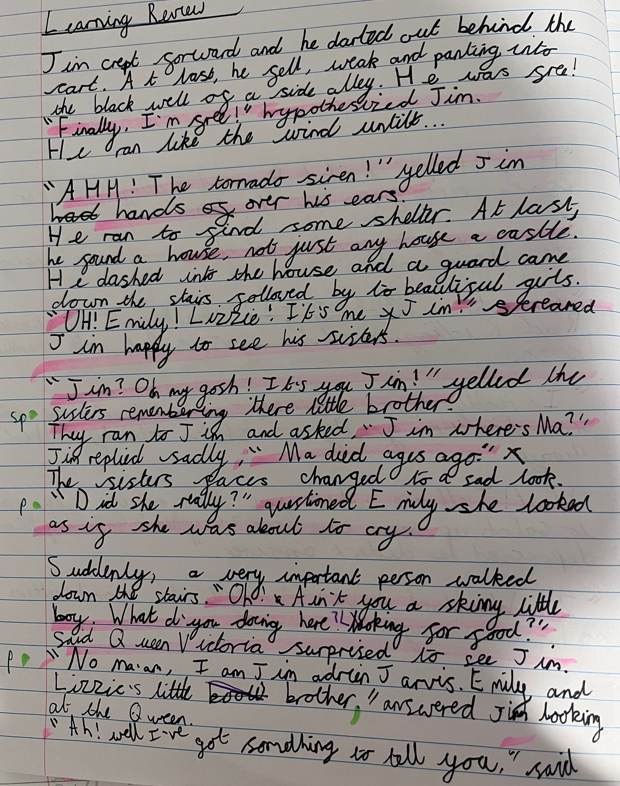 Learning Review
Jim crept forward and he darted out behind the
cart. At last, he fell, weak and panting into
the black well of a side alley. He was free!
"Finally, I'm free!" hypothesized Jim.
He ran like the wind untill...
"AHH! The tornado siren!" yelled Jim
had hands of over his ears.
He ran to find some shelter. At last,
he found a house, not just any house a castle.
He dashed into the house and a guard came
down the stairs followed by to beautiful girls.
"UH! Emily! Lizzie! It's me Jim!" screamed
Jim happy to see his sisters.
"Jim? Oh my gosh! It's you Jim!" yelled the
sp sisters remembering there little brother.
They ran to Jim and asked, "Jim where's Ma?"
Jim replied sadly, "Ma died ages ago." x
The sisters faces changed to a sad look.
p "Did she really?" questioned Emily she looked
as if she was about to cry.
Suddenly, a very important person walked
down the stairs "Oh! Ain't you a skinny little
boy. What d'you doing here? Looking for food?"
Said Queen Victoria surprised to see Jim.
p "No ma'am, I am Jim adrien Jarvis. Emily and
Lizzie's little brother," answered Jim looking
at the Queen.
"Ah! well I've got something to tell you," said